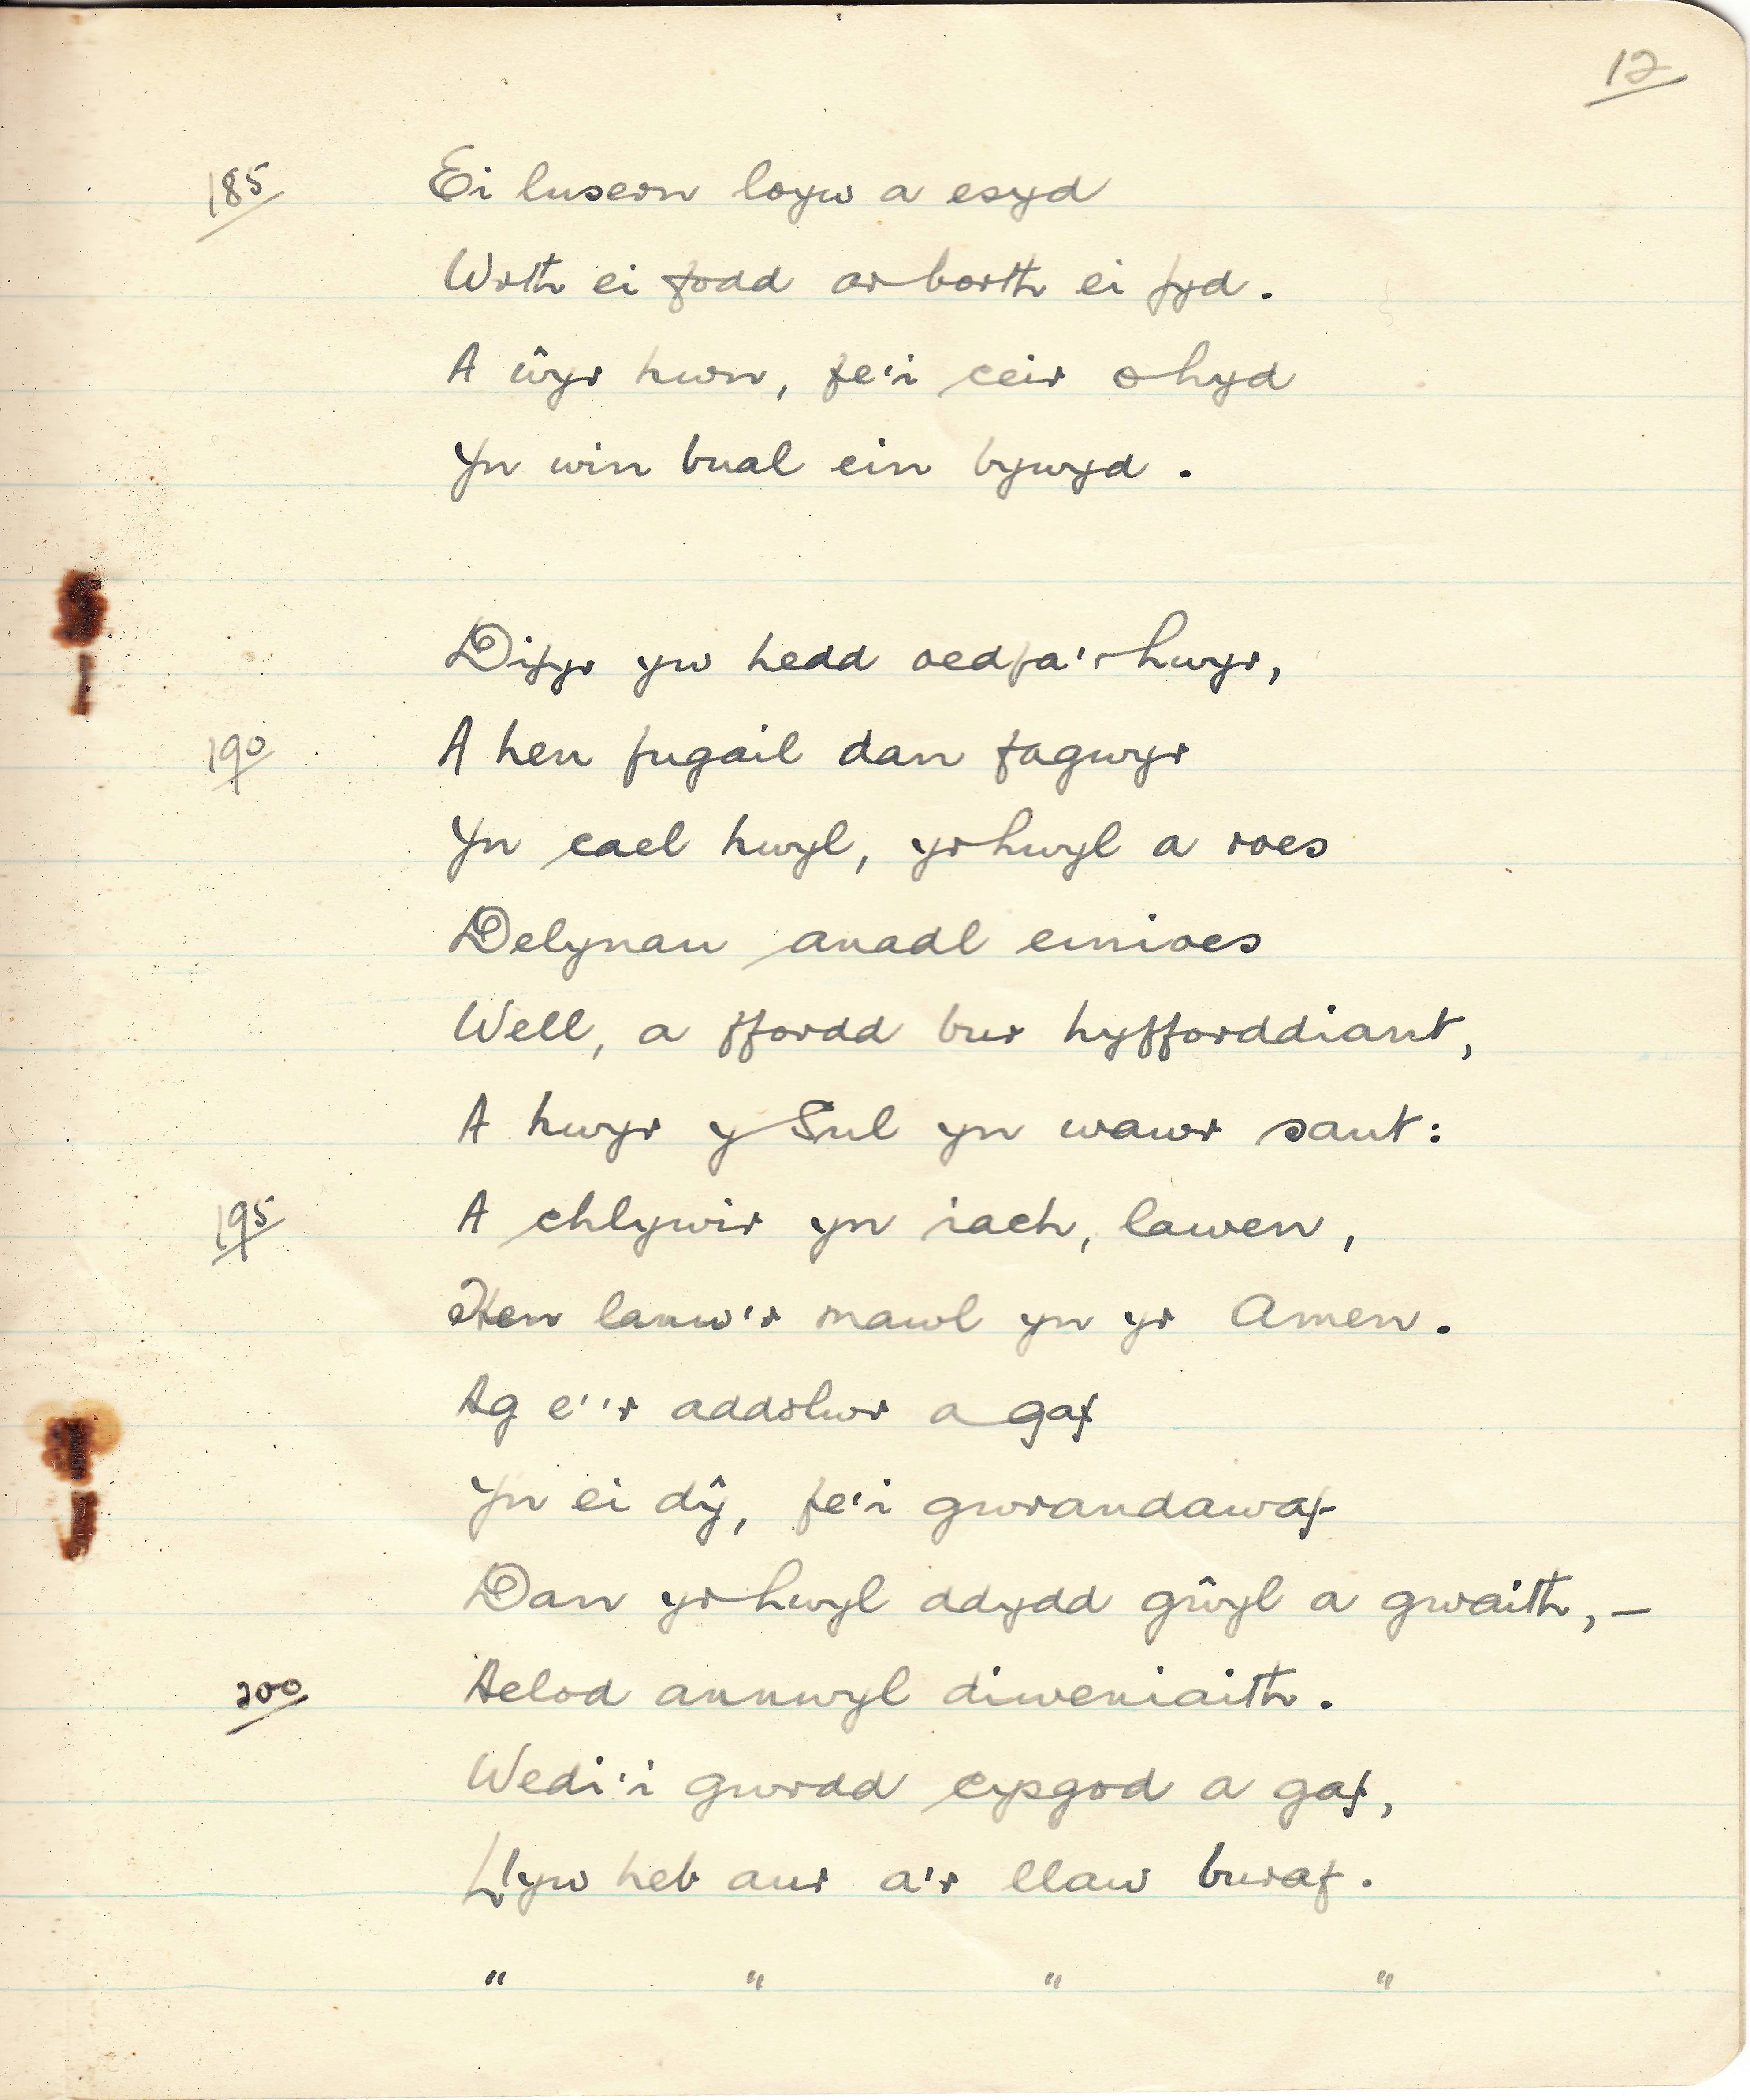 12
185 Ei lusern loyw a esyd
Wrth ei fodd ar borth ei fyd.
A ŵyr hwn, fe'i ceir o hyd
Yn win bual ein bywyd.
Difyr yw hedd oedfa'r hwyr,
190 A hen fugail dan fagwyr
Yn cael hwyl, yr hwyl a roes
Delynau anadl einioes
Well, a ffordd bur hyfforddiant,
A hwyr y Sul yn wawr sant:
195 A chlywir yn iach, lawen,
Hen lanw'r mawl yn yr Amen.
Ag e''r addolwr a gaf
Yn ei dŷ, fe'i gwrandawaf
Dan yr hwyl ddydd gŵyl a gwaith, –
200 Aelod annwyl diweniaith.
Wedi'i gwrdd cysgod a gaf,
Llyw heb aur a'r llaw buraf.
" " " "